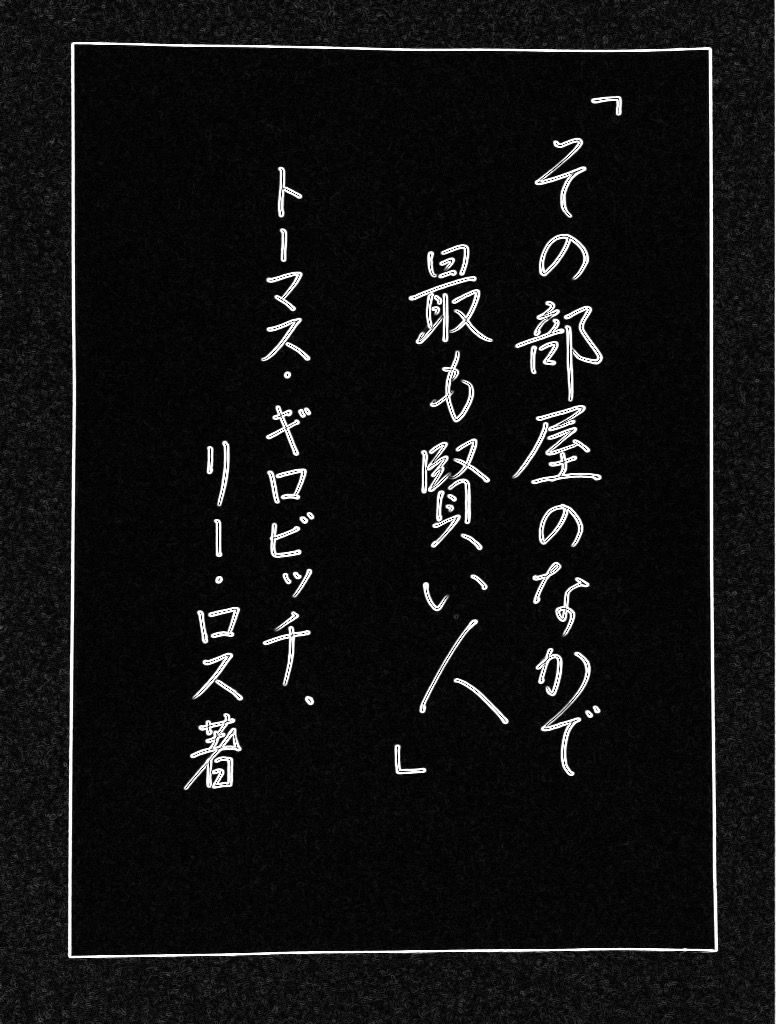 「その部屋のなかで
最も賢い人」
トーマス・ギロビッチ、
リー・ロス著